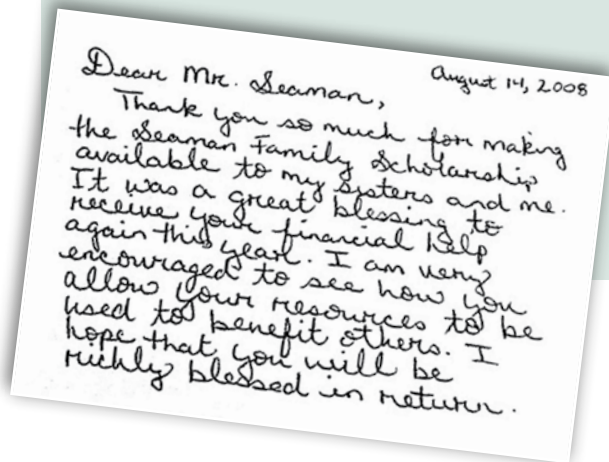 August 14, 2008
Dear Mr. Seaman,
Thank you so much for making
the Seaman Family Scholarship
available to my sisters and me.
It was a great blessing to
receive your financial help
again this year. I am very
encouraged to see how you
allow your resources to be
used to benefit others. I
hope that you will be
richly blessed in return.